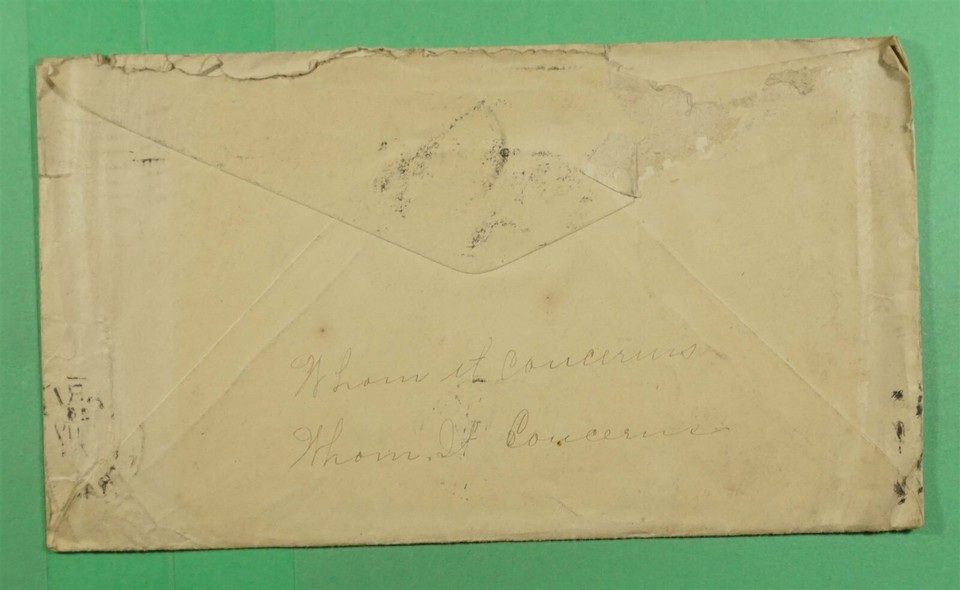 Whom it concerns
Whom It Concerns